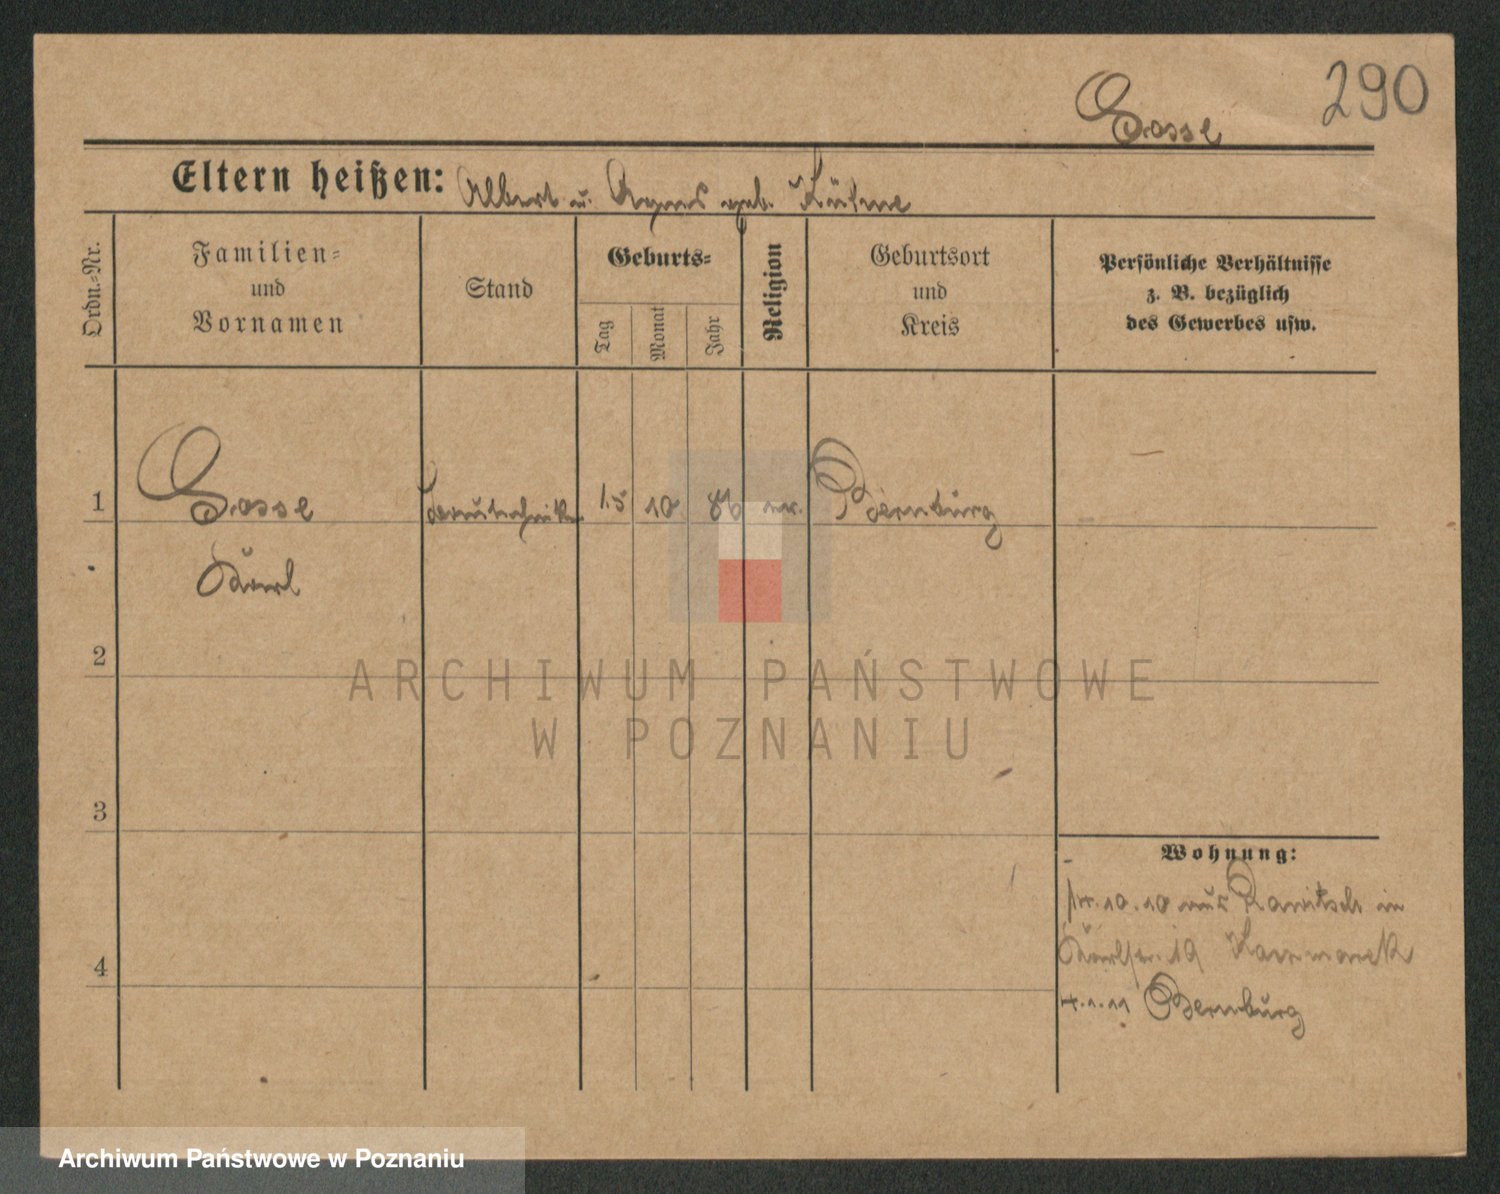 290
Gasse
Eltern heißen: Albert u. Agnes geb. Kühne
Ordn.-Nr.
Familien-
und
Vornamen
Stand
Geburts-
Tag
Monat
Jahr
Religion
Geburtsort
und
Kreis
Persönliche Verhältnisse
z. B. bezüglich
des Gewerbes usw.
1 Gasse 15 10 86 ev. Bernburg
Karl
2
ARCHIWUM PAŃSTWOWE
W POZNANIU
3
Wohnung:
10.10 aus Rawitsch in
4
Karlstr. 19
4.1.11 Bernburg
Archiwum Państwowe w Poznaniu